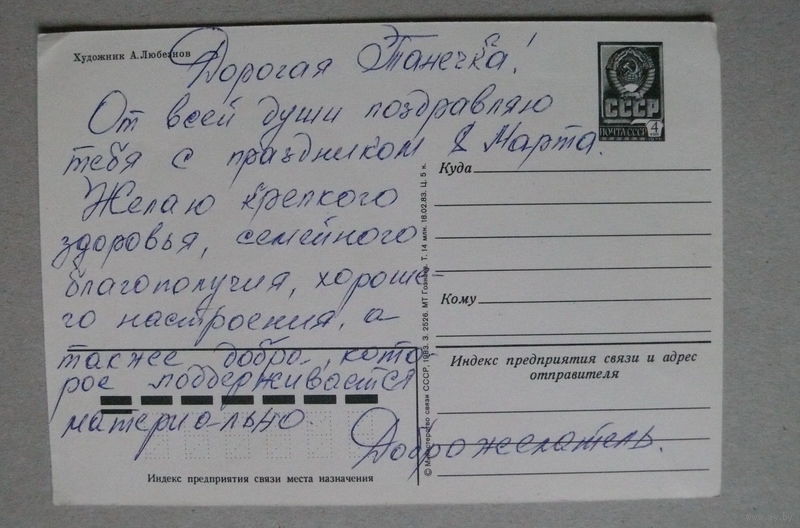 Художник А.Любезнов
Дорогая Танечка!
От всей души поздравляю
тебя с праздником 8 Марта.
Желаю крепкого
здоровья, семейного
благополучия, хороше-
го настроения, а
также добра, кото-
рое поддерживается
материально.
Доброжелатель.
СССР
ПОЧТА СССР 4
Куда
Кому
Индекс предприятия связи и адрес
отправителя
Индекс предприятия связи места назначения
© Министерство связи СССР, 1983. З. 2526. МТ Гознака. Т. 14 млн. 18.02.83. Ц. 5 к.